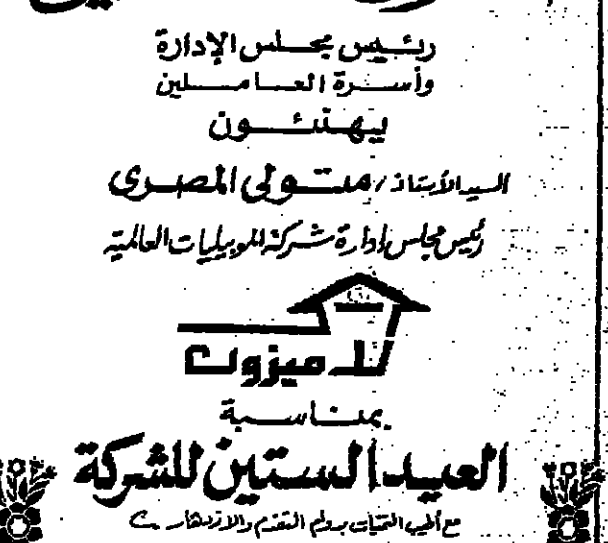 رئيس مجلس الإدارة
وأسرة العاملين
يهنئون
السيد الأستاذ / متولى المصرى
رئيس مجلس إدارة شركة الموبيليات العالمية
لاميزون
بمناسبة
العيد الستين للشركة
مع أطيب التمنيات بدوام التقدم والازدهار